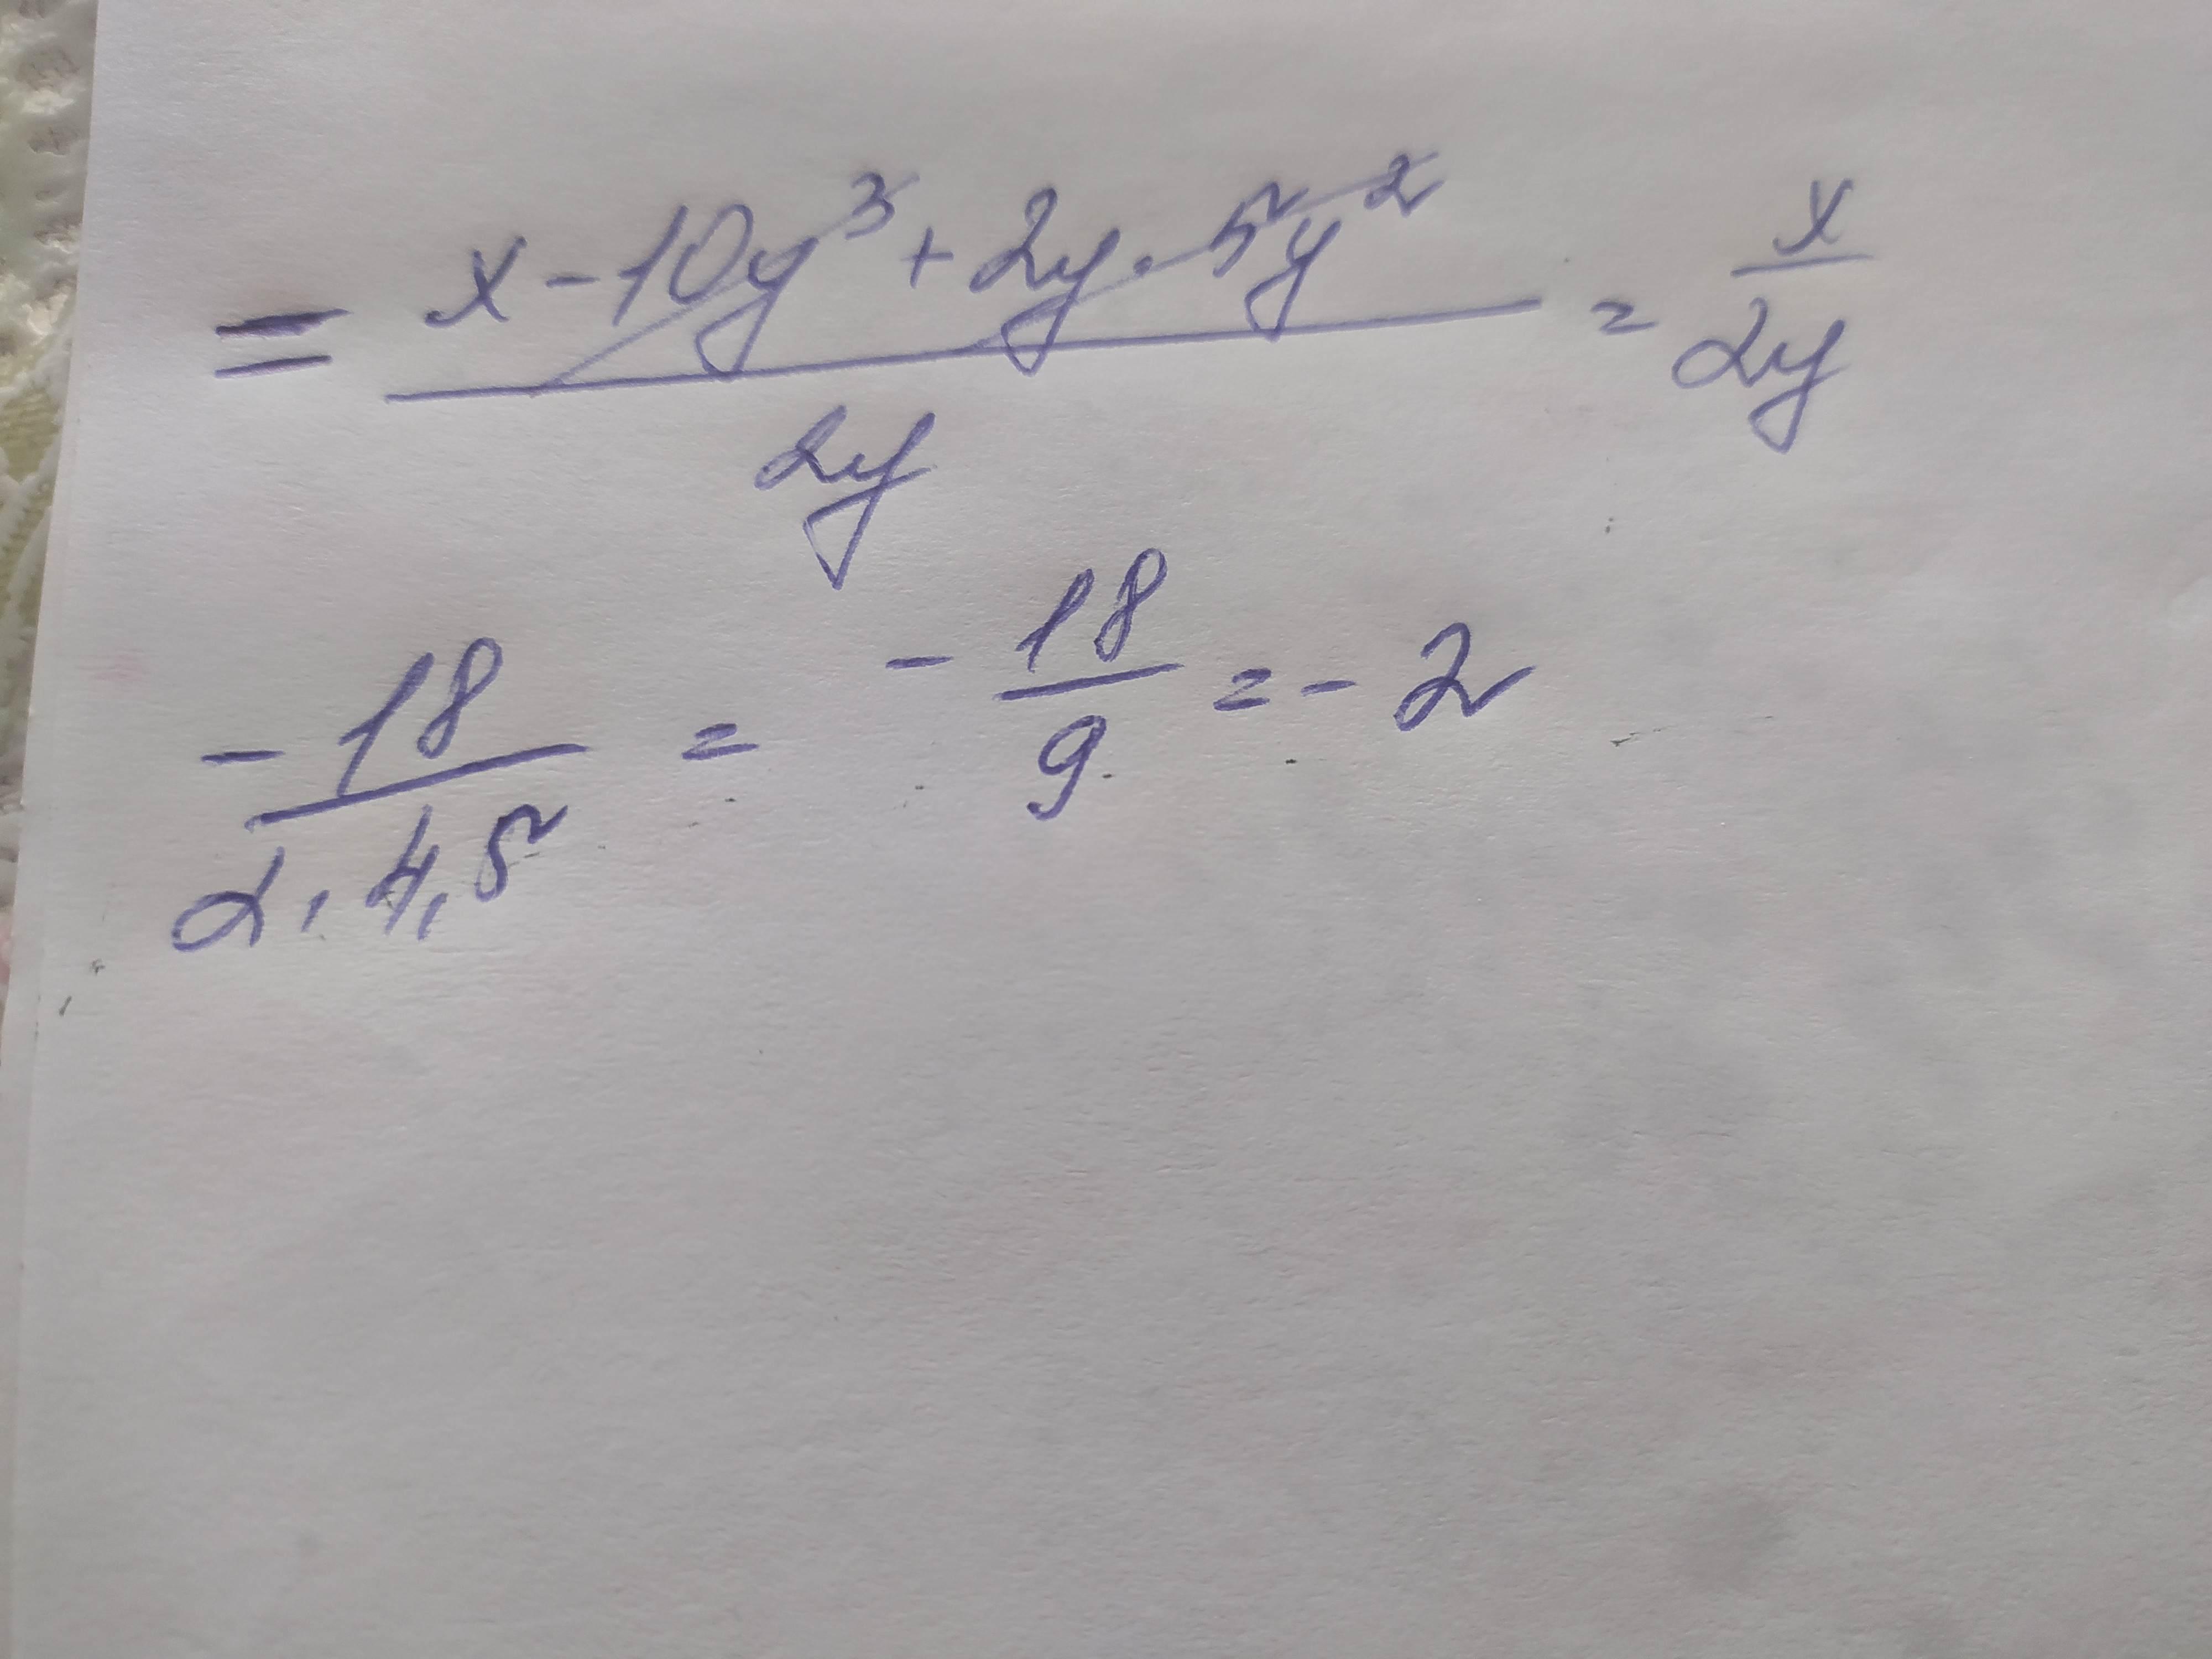 = x - 10y³ + 2y · 5y² / 2y = x / 2y
-18 / 2 · 4,5 = - 18 / 9 = - 2